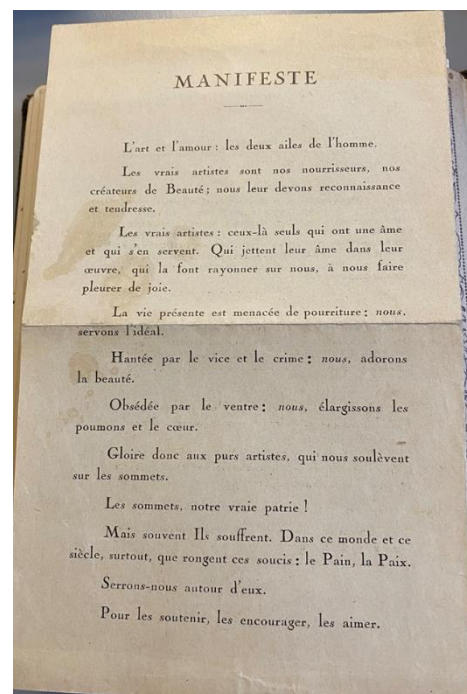 MANIFESTE
L'art et l'amour : les deux ailes de l'homme.
Les vrais artistes sont nos nourrisseurs, nos
créateurs de Beauté ; nous leur devons reconnaissance
et tendresse.
Les vrais artistes : ceux-là seuls qui ont une âme
et qui s'en servent. Qui jettent leur âme dans leur
œuvre, qui la font rayonner sur nous, à nous faire
pleurer de joie.
La vie présente est menacée de pourriture : nous,
servons l'idéal.
Hantée par le vice et le crime : nous, adorons
la beauté.
Obsédée par le ventre : nous, élargissons les
poumons et le cœur.
Gloire donc aux purs artistes, qui nous soulèvent
sur les sommets.
Les sommets, notre vraie patrie !
Mais souvent Ils souffrent. Dans ce monde et ce
siècle, surtout, que rongent ces soucis : le Pain, la Paix.
Serrons-nous autour d'eux.
Pour les soutenir, les encourager, les aimer.